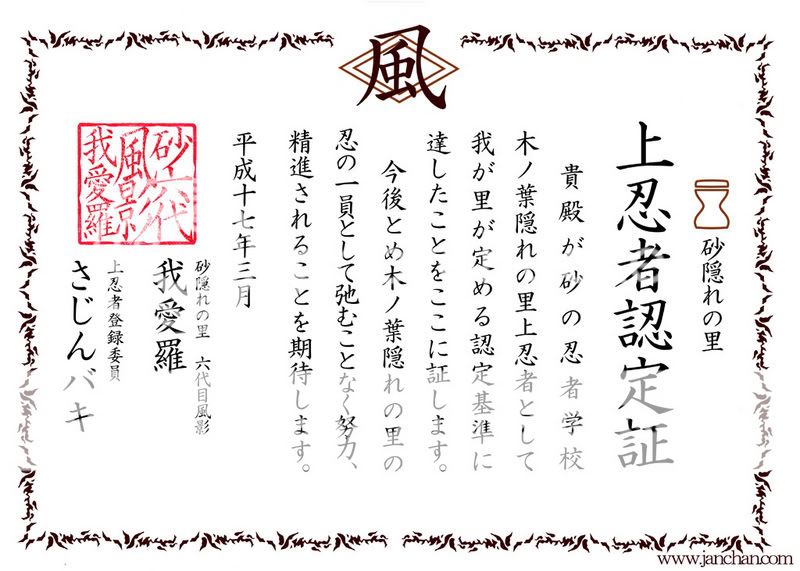 風
砂隠れの里
上忍者認定証
貴殿が砂の忍者学校
木ノ葉隠れの里上忍者として
我が里が定める認定基準に
達したことをここに証します。
今後とめ木ノ葉隠れの里の
忍の一員として弛むことなく努力、
精進されることを期待します。
平成十七年三月
砂隠れの里 六代目風影
我愛羅
上忍者登録委員
さじんバキ
砂六代
風影
我愛羅
www.janchan.com